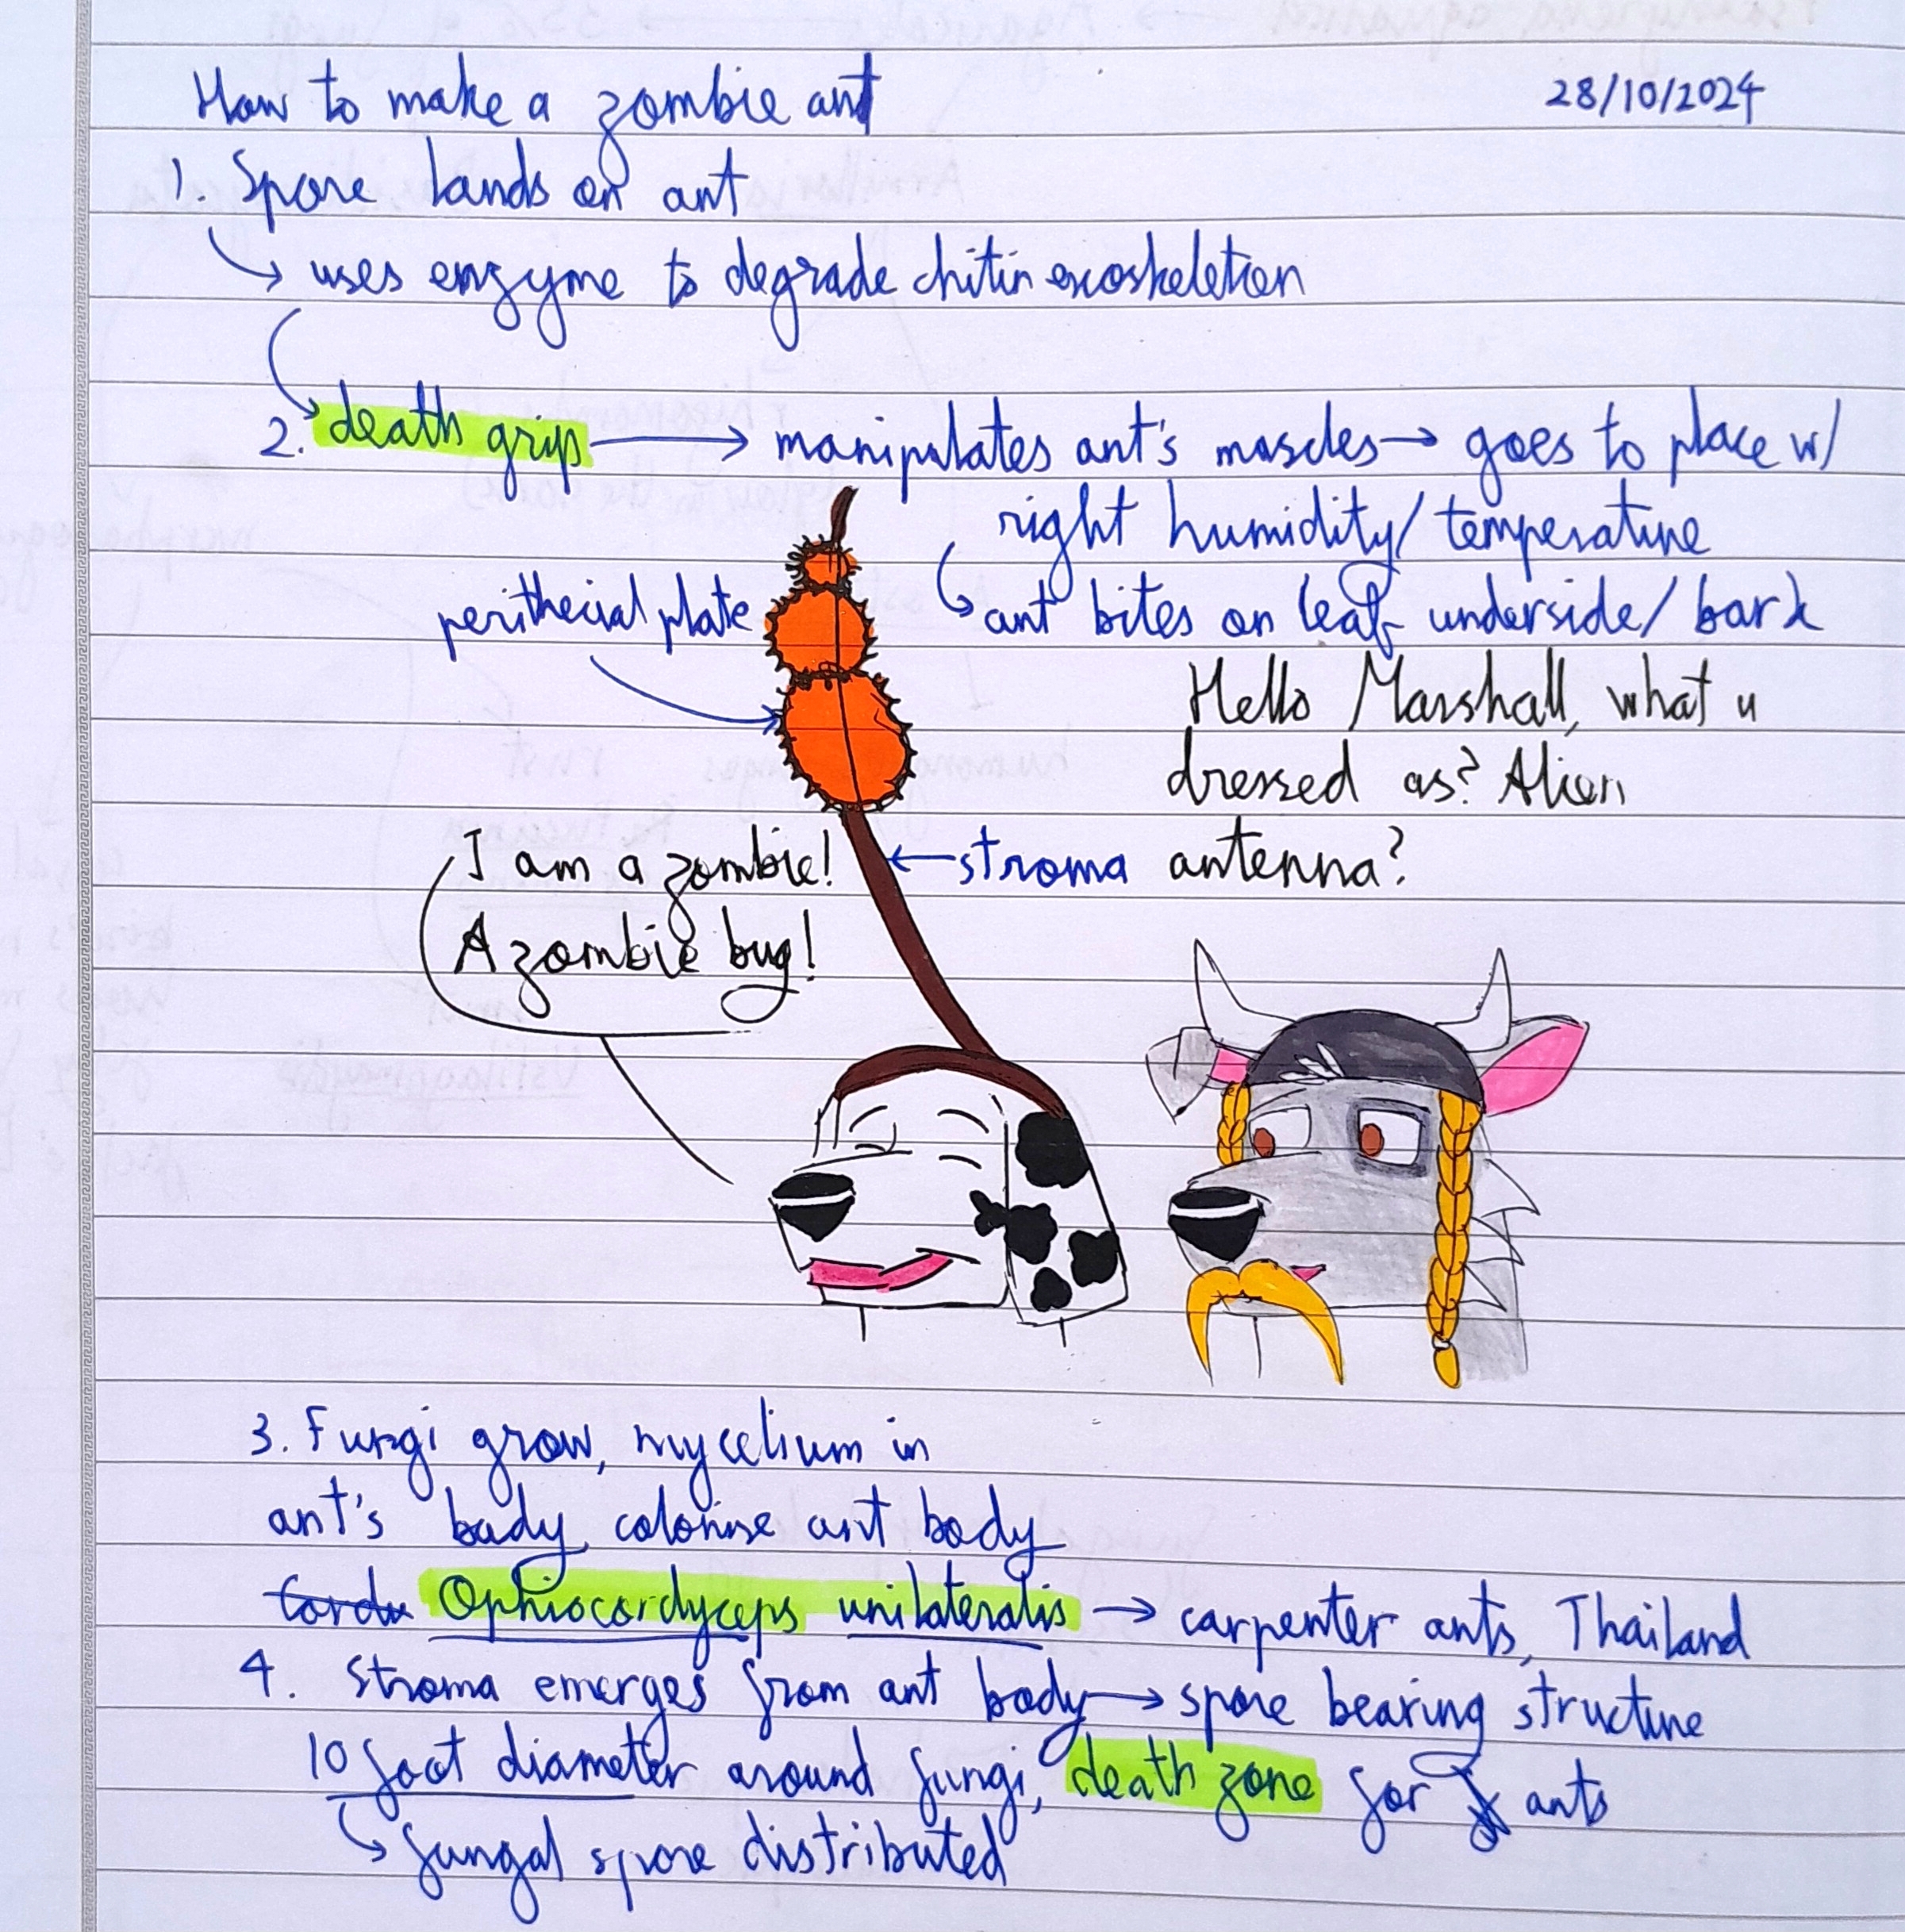 How to make a zombie ant
28/10/2024
1. Spore lands on ant
↳ uses enzyme to degrade chitin exoskeleton
2. death grip → manipulates ant's muscles → goes to place w/
right humidity/temperature
↳ ant bites on leaf underside/bark
perithecial plate
Hello Marshall, what u
dressed as? Alien
antenna?
← stroma
I am a zombie!
A zombie bug!
3. Fungi grow, mycelium in
ant's body, colonise ant body
Cordu Ophiocordyceps unilateralis → carpenter ants, Thailand
4. Stroma emerges from ant body → spore bearing structure
10 foot diameter around fungi, death zone for ants
↳ fungal spore distributed